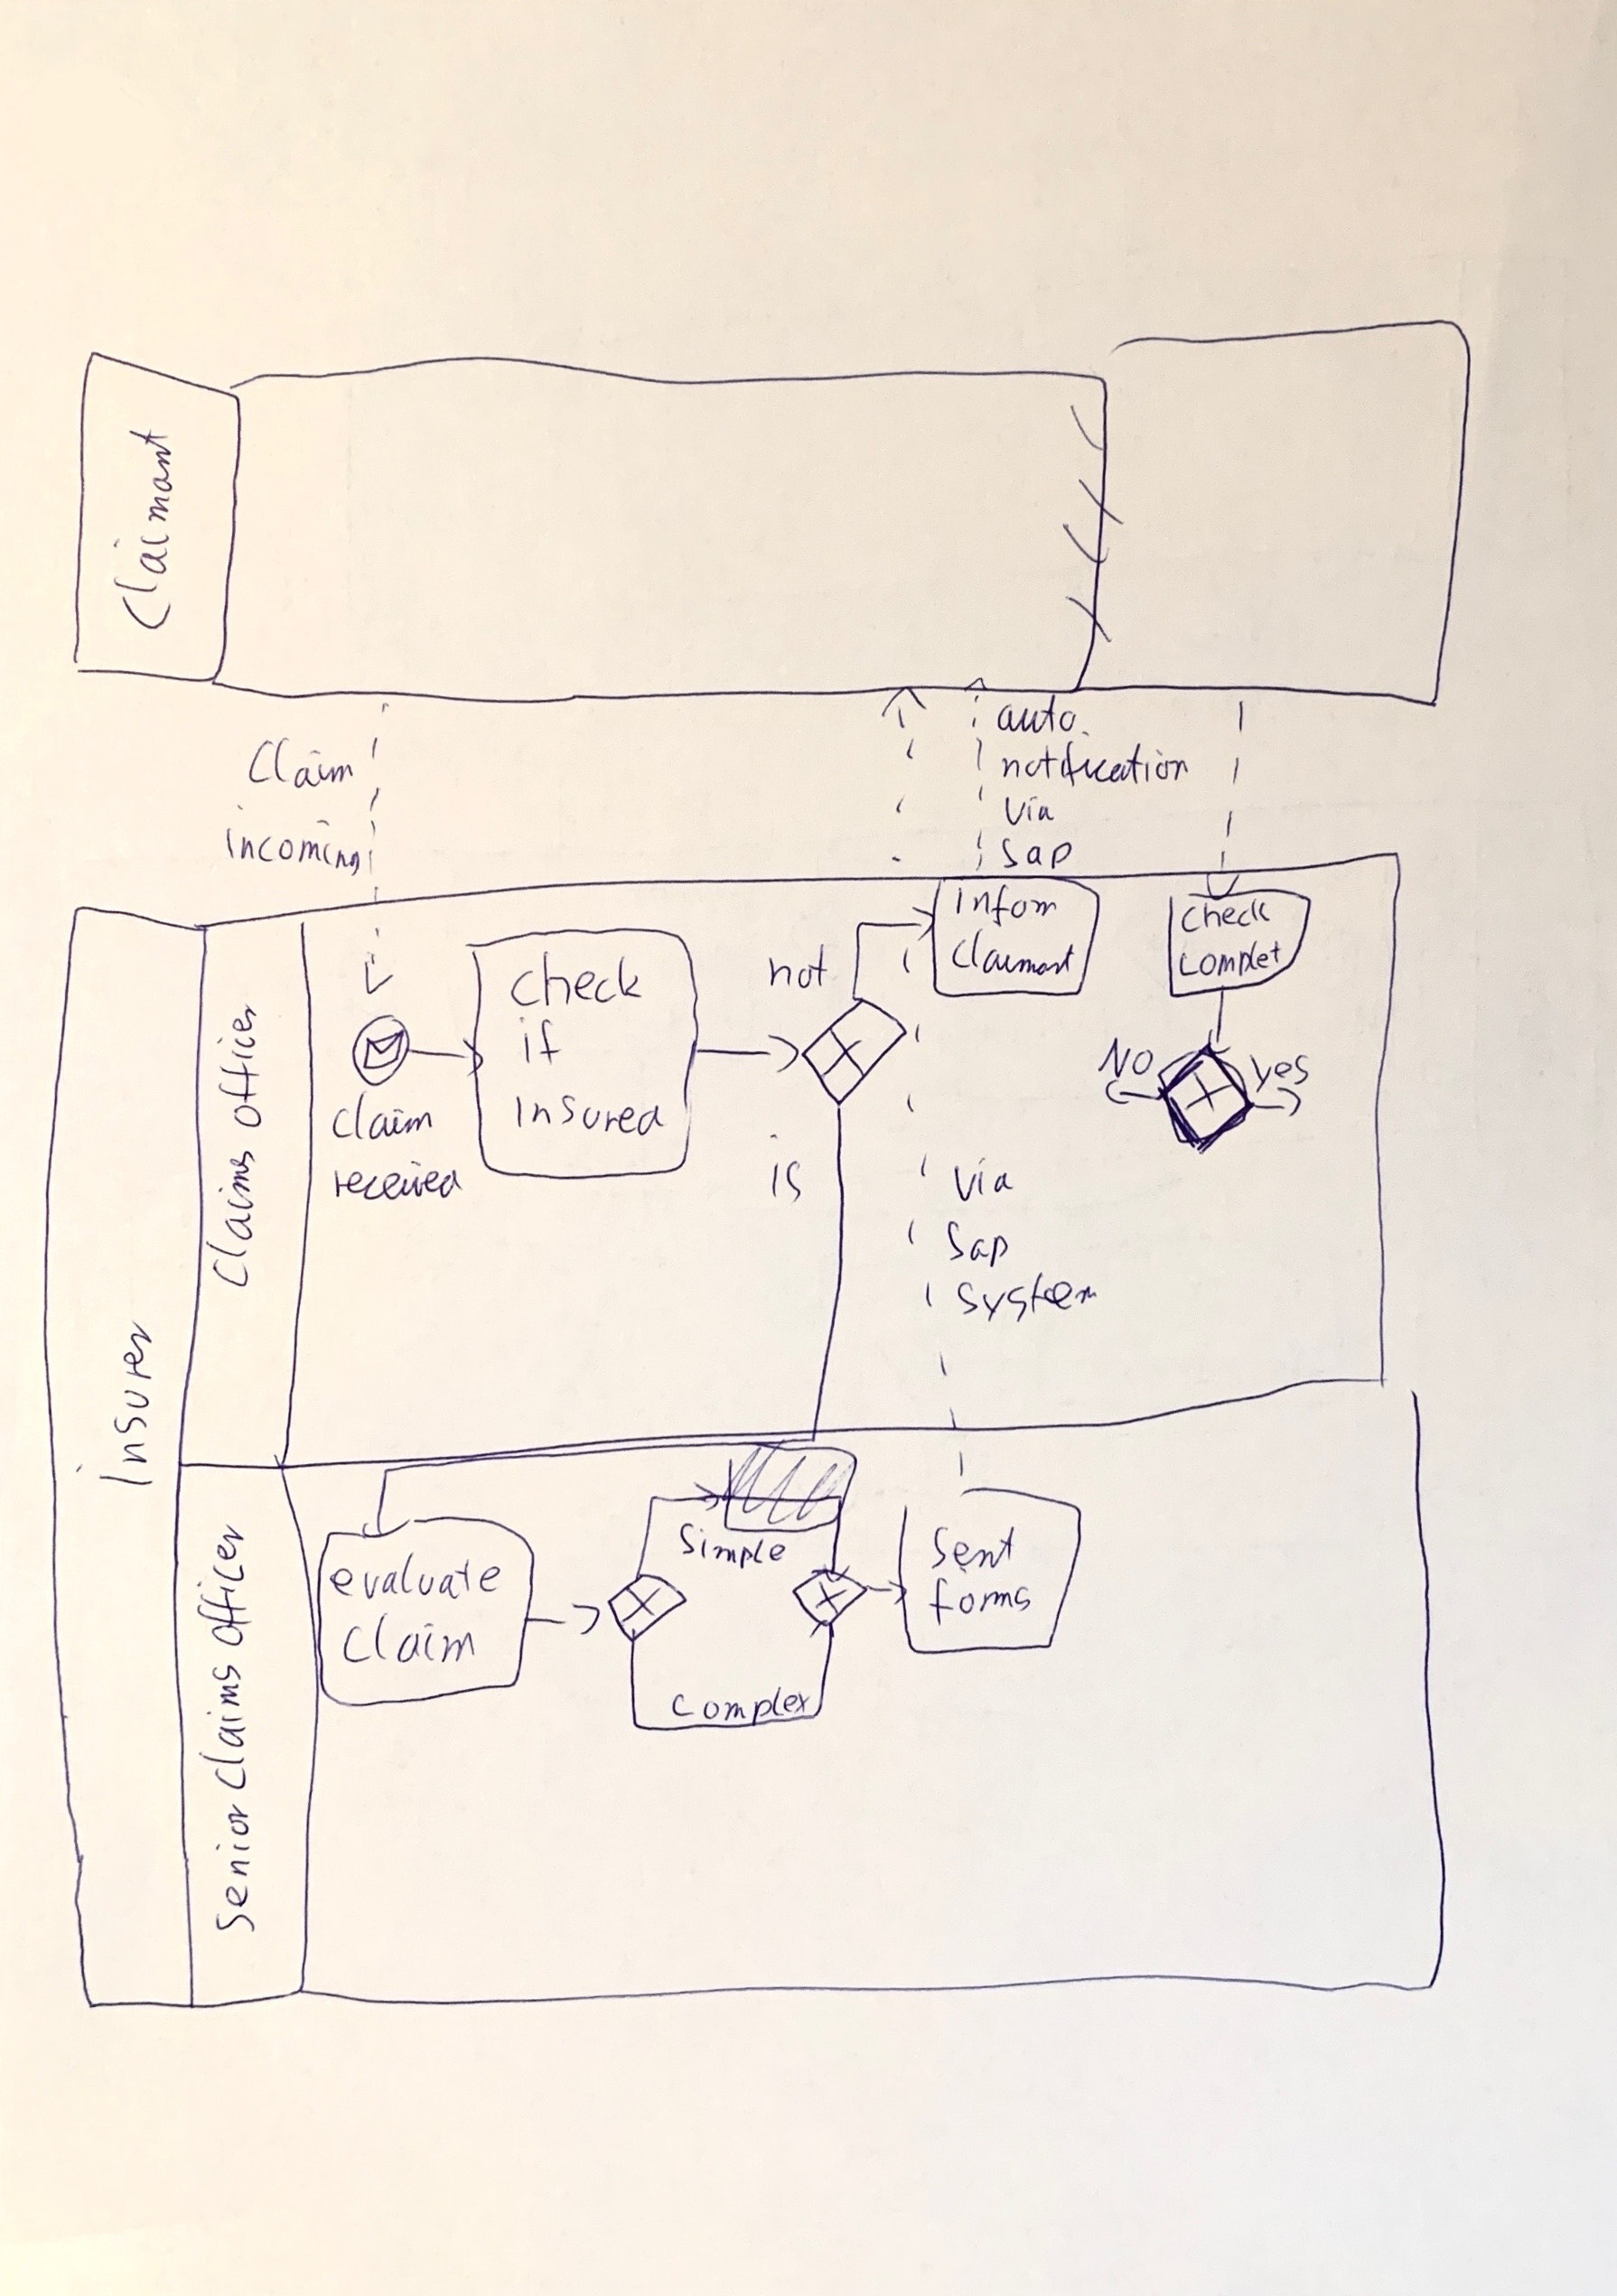 Claimant
Claim
incoming
auto.
notification
via
Sap
Insurer
Claims officer
claim
received
check
if
insured
not
is
Inform
Claimant
check
complet
NO
yes
via
Sap
System
Senior Claims Officer
evaluate
claim
Simple
Complex
Sent
forms